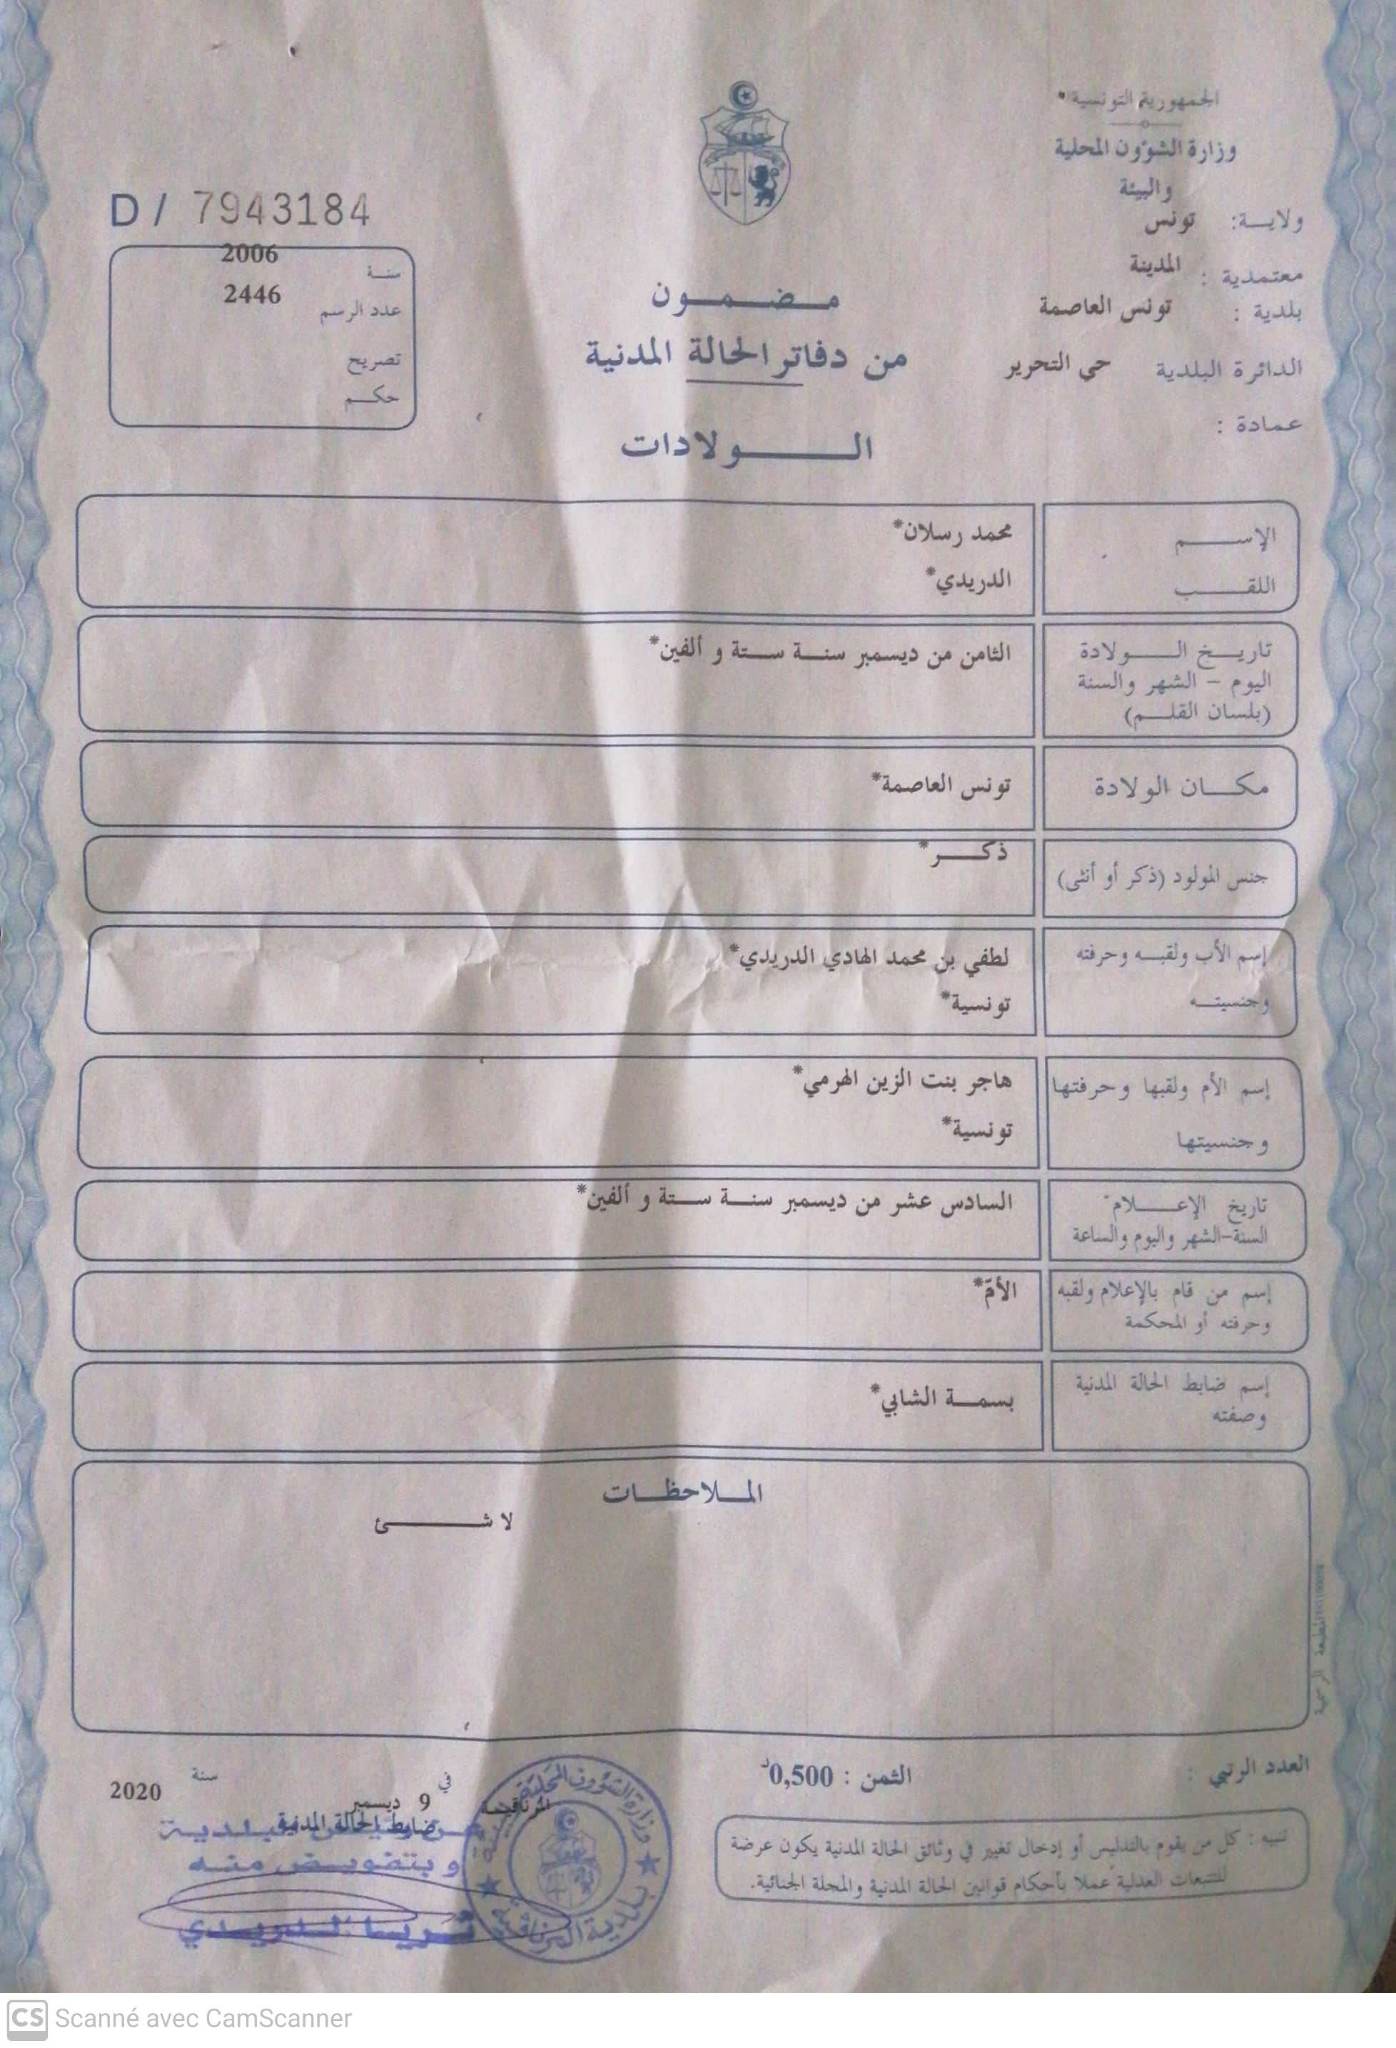 الجمهورية التونسية
وزارة الشؤون المحلية
والبيئة
ولاية: تونس
معتمدية : المدينة
بلدية : تونس العاصمة
الدائرة البلدية حي التحرير
عمادة :
D / 7943184
سنة 2006
عدد الرسم 2446
تصريح
حكم
مضمون
من دفاتر الحالة المدنية
الولادات
الإسم محمد رسلان*
اللقب الدريدي*
تاريخ الولادة الثامن من ديسمبر سنة ستة و ألفين*
اليوم - الشهر والسنة
(بلسان القلم)
مكان الولادة تونس العاصمة*
جنس المولود (ذكر أو أنثى) ذكر*
إسم الأب ولقبه وحرفته لطفي بن محمد الهادي الدريدي*
وجنسيته تونسية*
إسم الأم ولقبها وحرفتها هاجر بنت الزين الهرمي*
وجنسيتها تونسية*
تاريخ الإعلام السادس عشر من ديسمبر سنة ستة و ألفين*
السنة-الشهر واليوم والساعة
إسم من قام بالإعلام ولقبه الأمّ*
وحرفته أو المحكمة
إسم ضابط الحالة المدنية بسمة الشابي*
وصفته
الملاحظات
لا شئ
المطبعة الرسمية
العدد الرتبي :
الثمن : 0,500د
تنبيه : كل من يقوم بالتدليس أو إدخال تغيير في وثائق الحالة المدنية يكون عرضة
للتتبعات العدلية عملا بأحكام قوانين الحالة المدنية والمجلة الجنائية.
المرناقية في 9 ديسمبر سنة 2020
ضابط الحالة المدنية
وبتفويض منه
الدريدي
وزارة الشؤون المحلية
بلدية المرناقية
CS Scanné avec CamScanner